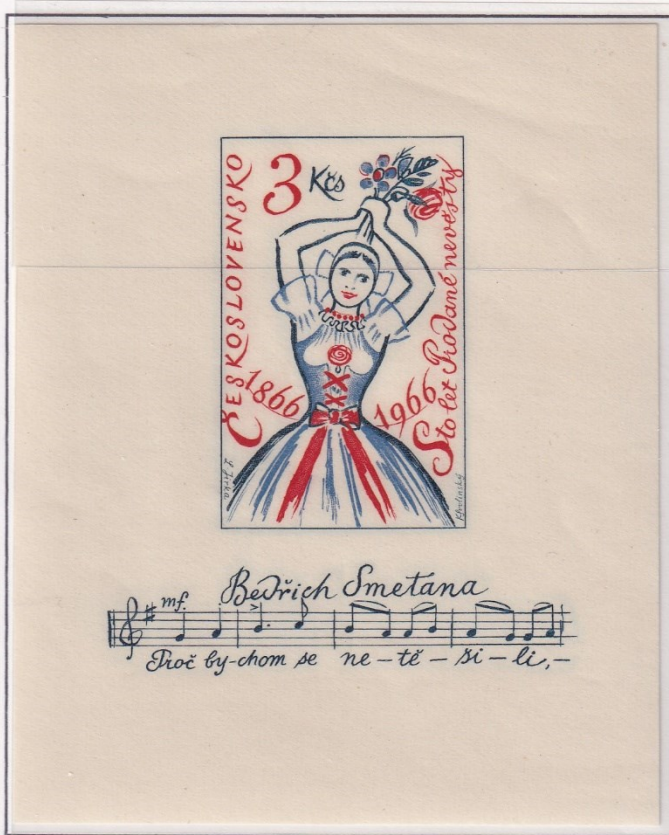 ČESKOSLOVENSKO
3 Kčs
1866 1966
Sto let Prodané nevěsty
Bedřich Smetana
mf.
Proč by-chom se ne-tě-ši-li,-